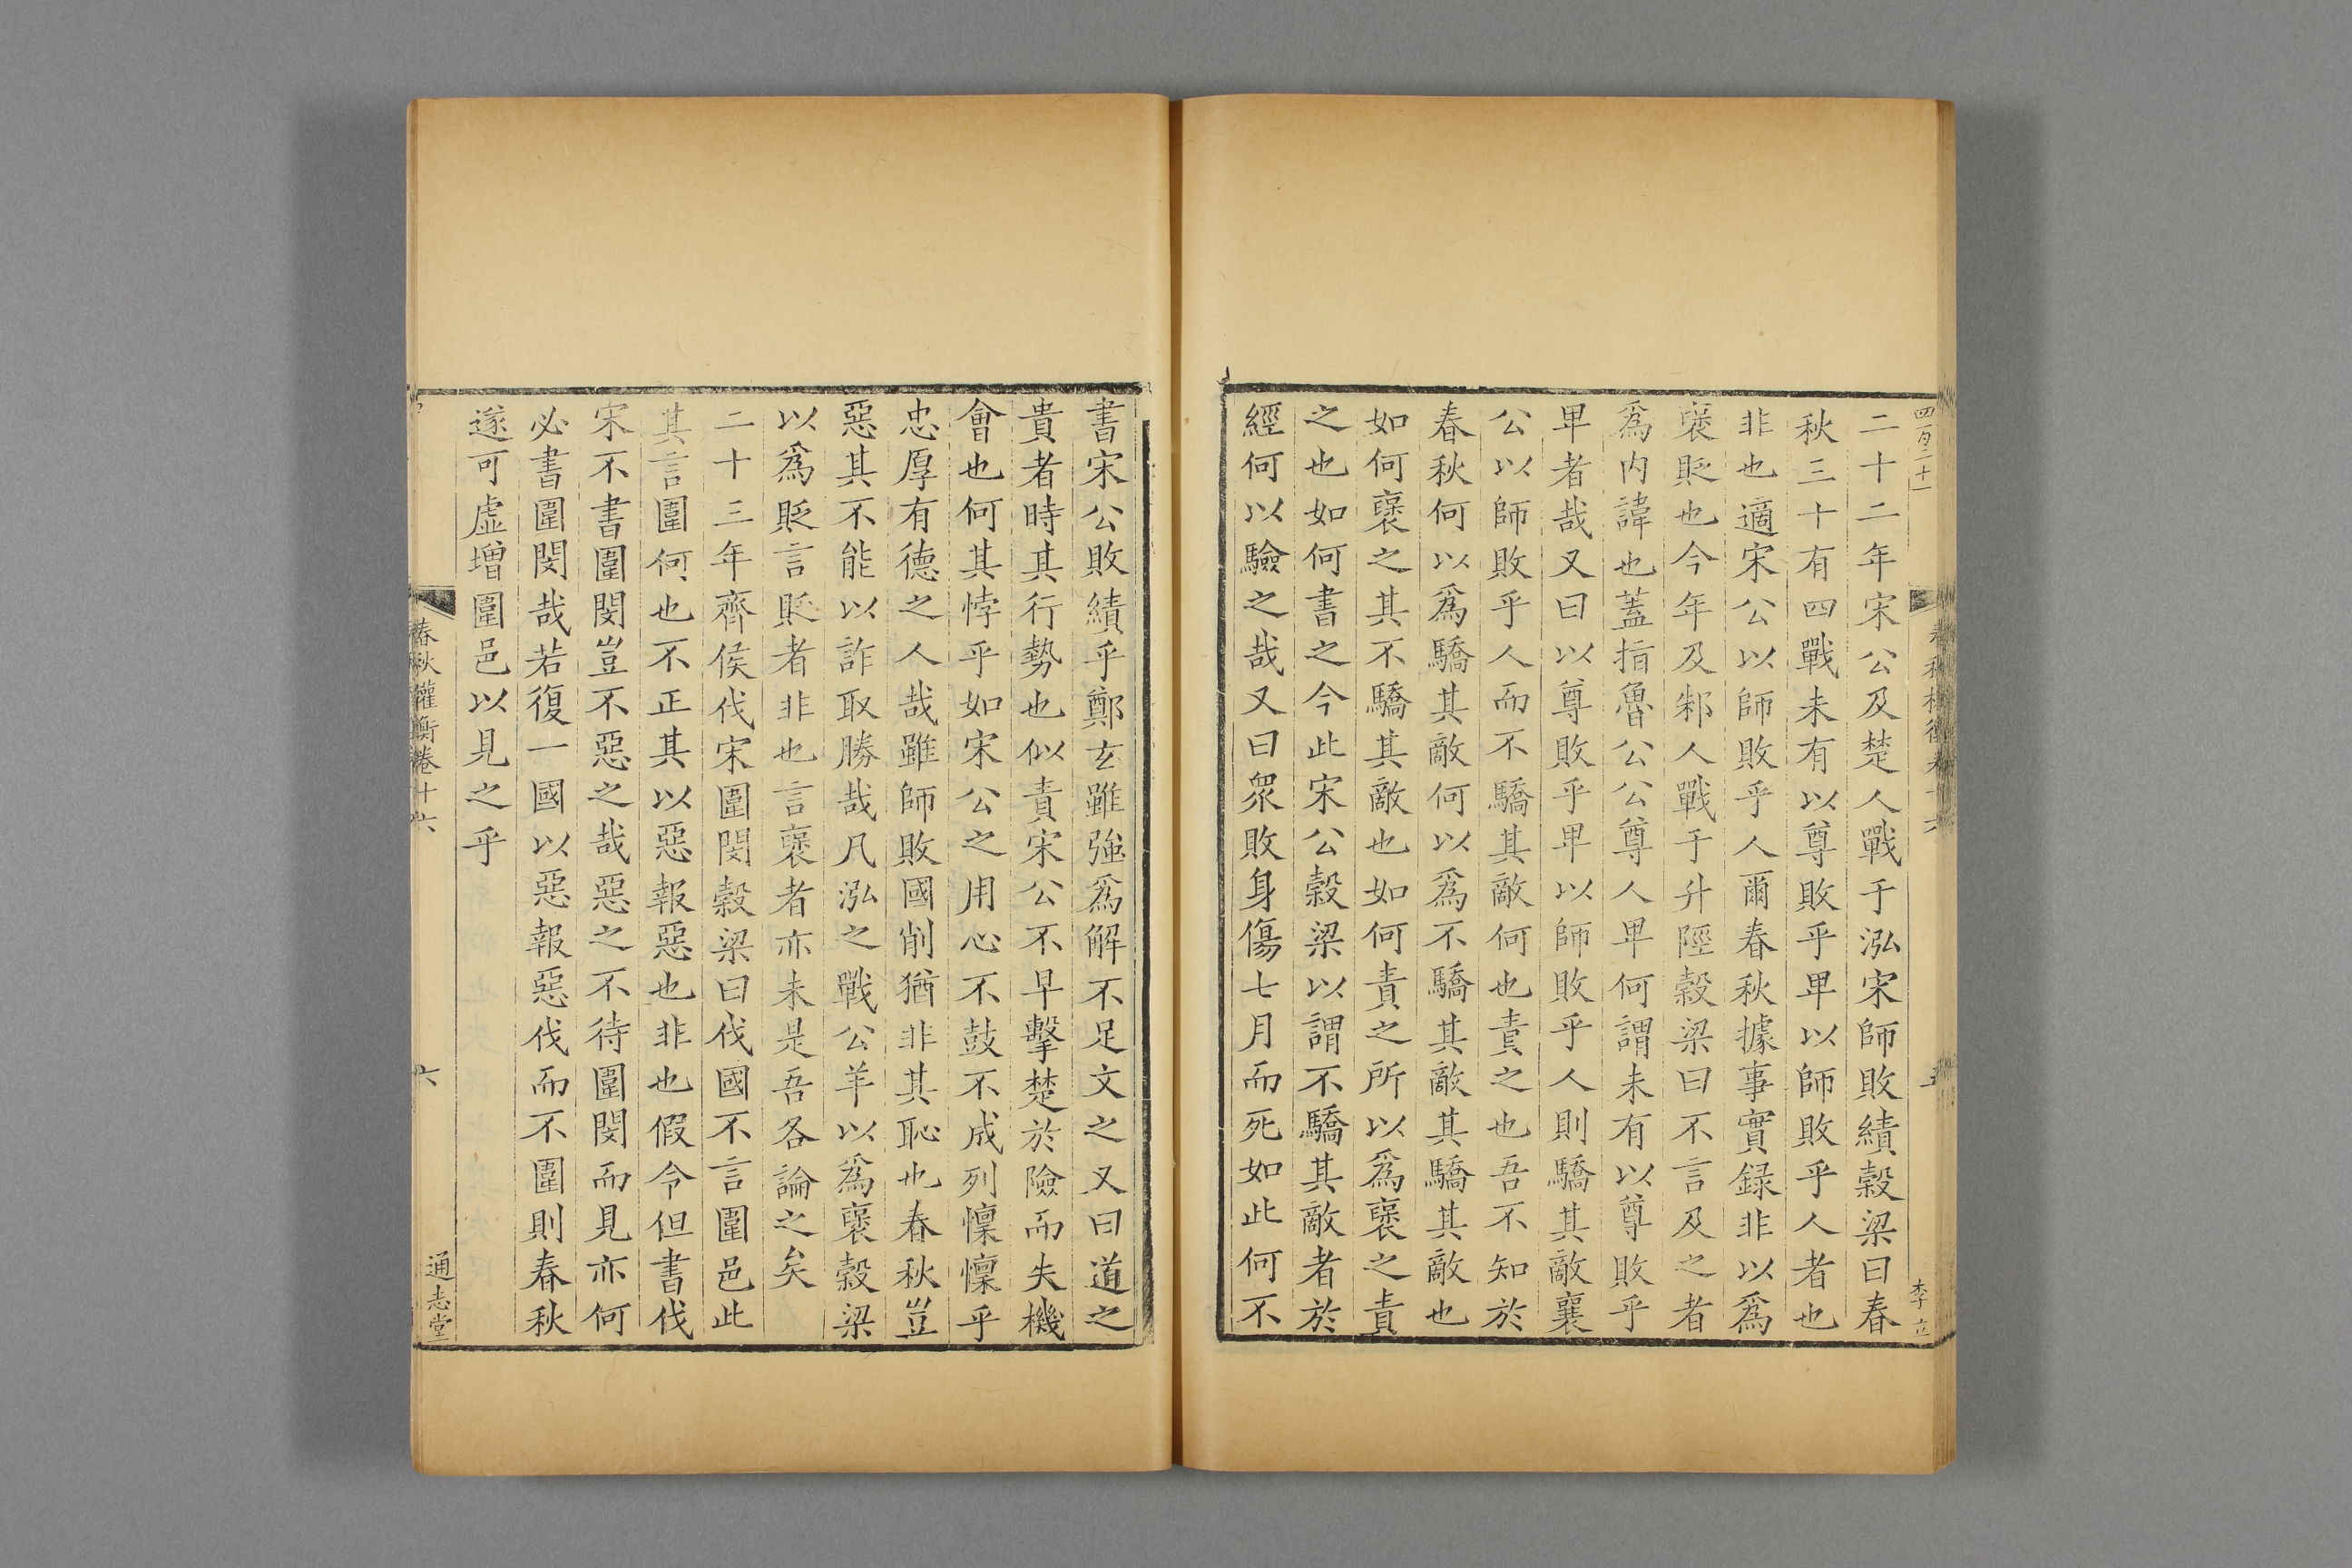 四百二十一
春秋權衡卷十六
五
李立
二十二年宋公及楚人戰于泓宋師敗績穀梁曰春
秋三十有四戰未有以尊敗乎𤰞以師敗乎人者也
非也適宋公以師敗乎人爾春秋據事實録非以爲
襃貶也今年及邾人戰于升陘穀梁曰不言及之者
爲内諱也蓋指魯公公尊人𤰞何謂未有以尊敗乎
𤰞者哉又曰以尊敗乎𤰞以師敗乎人則驕其敵襄
公以師敗乎人而不驕其敵何也責之也吾不知於
春秋何以爲驕其敵何以爲不驕其敵其驕其敵也
如何襃之其不驕其敵也如何責之所以爲襃之責
之也如何書之今此宋公穀梁以謂不驕其敵者於
經何以驗之哉又曰衆敗身傷七月而死如此何不
書宋公敗績乎鄭玄雖強爲解不足文之又曰道之
貴者時其行勢也似責宋公不早擊楚於險而失機
會也何其悖乎如宋公之用心不鼓不成列懍懍乎
忠厚有德之人哉雖師敗國削猶非其恥也春秋豈
惡其不能以詐取勝哉凡泓之戰公羊以爲襃穀梁
以爲貶言貶者非也言襃者亦未是吾各論之矣
二十三年齊侯伐宋圍閔穀梁曰伐國不言圍邑此
其言圍何也不正其以惡報惡也非也假令但書伐
宋不書圍閔豈不惡之哉惡之不待圍閔而見亦何
必書圍閔哉若復一國以惡報惡伐而不圍則春秋
遂可虛增圍邑以見之乎
春秋權衡卷十六
六
通志堂